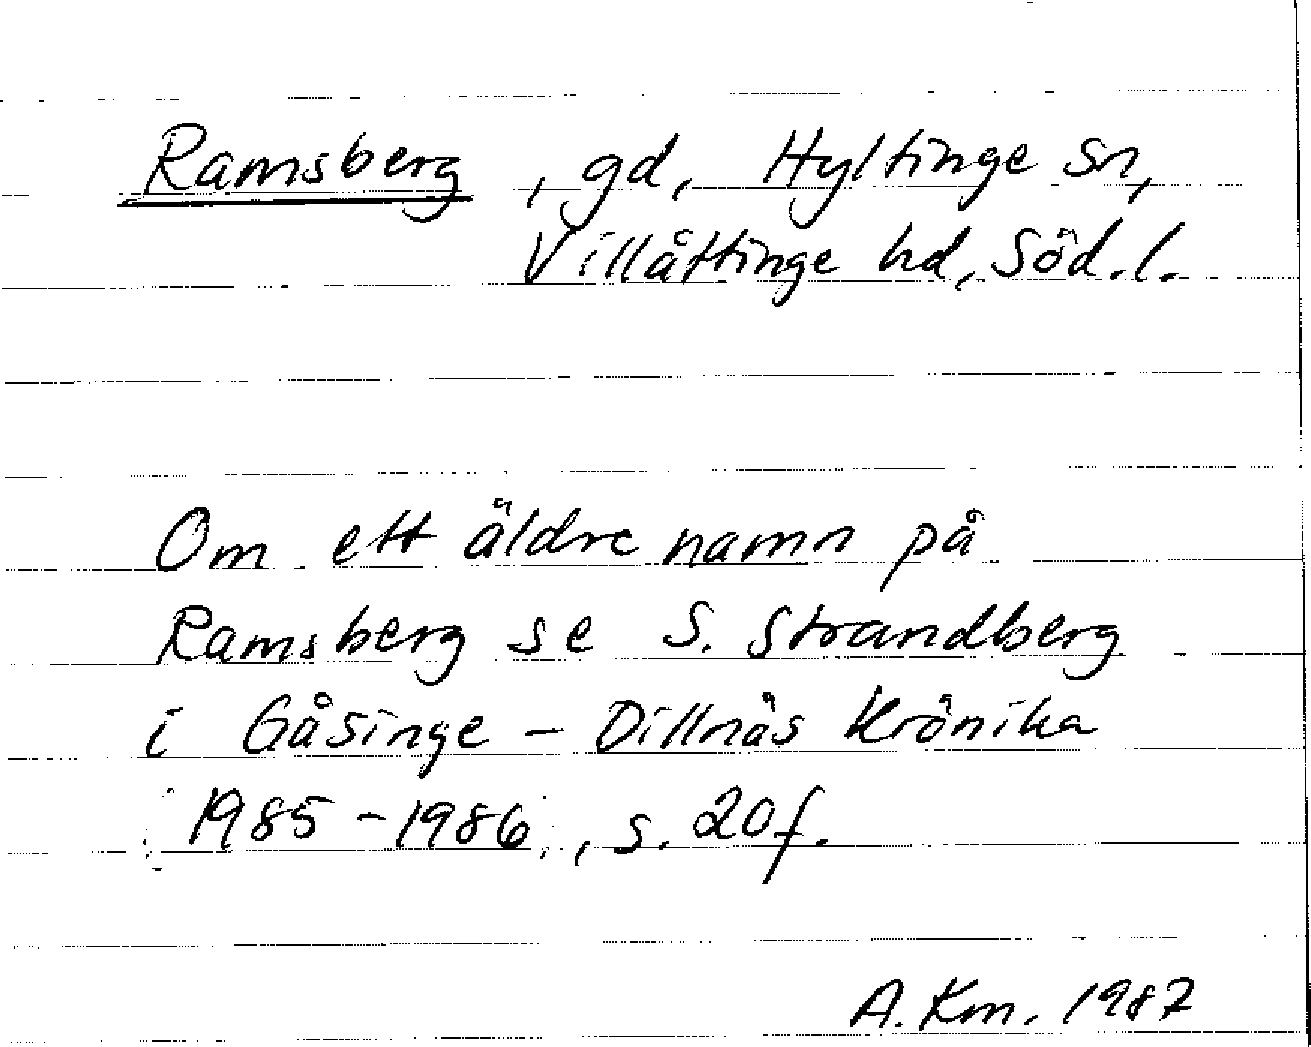 Ramsberg, gd, Hyltinge sn,
Villåttinge hd, Söd.l.
Om ett äldre namn på
Ramsberg se S. Strandberg
i Gåsinge - Dillnäs Krönika
1985-1986, s. 20f.
A. Km. 1987